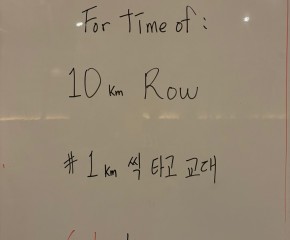 For Time of :
10 km Row
# 1 km 씩 타고 교대